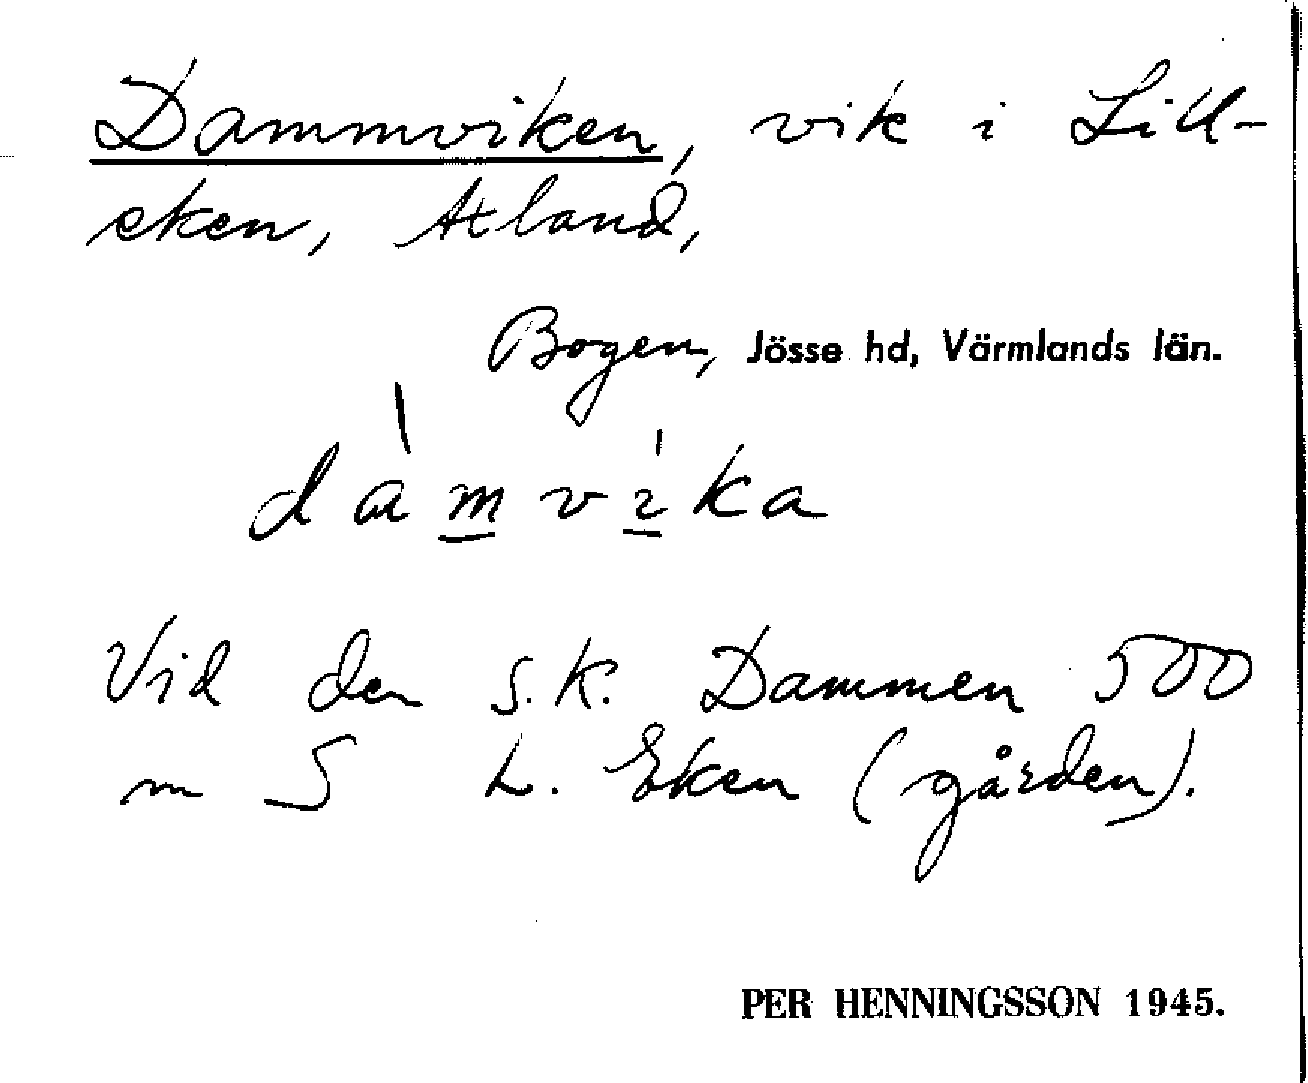 Dammviken, vik i Lill-
eken, Axland,
Bogen, Jösse hd, Värmlands län.
dàmvíka
Vid den s.k. Dammen 500
m S L. Eken (gården).
PER HENNINGSSON 1945.